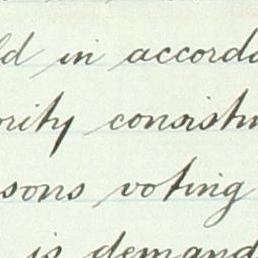 ld in accorda
ority consistin
sons voting
is demand